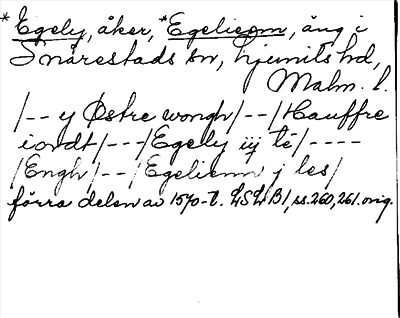 * Egely, åker, * Egelieom, äng i
Snårestads sn, Ljunits hd,
Malm. l.
/-- y Østre wongh/--/Hauffre
iordt/---/Egely iij te/----
/Engh/--/Egelienn j les/
förra delen av 1570-t. LSLB1, ss. 260, 261. orig.